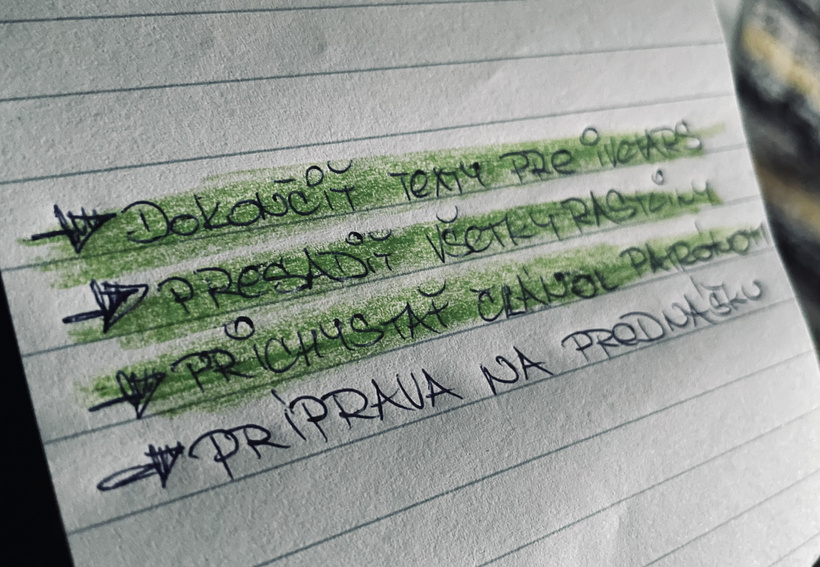 DOKONČIŤ TEXTY PRE
PRESADIŤ VŠETKY RASTLINY
PRICHYSTAŤ ČLÁNOK PATRÓNOM
PRÍPRAVA NA PREDNÁŠKU